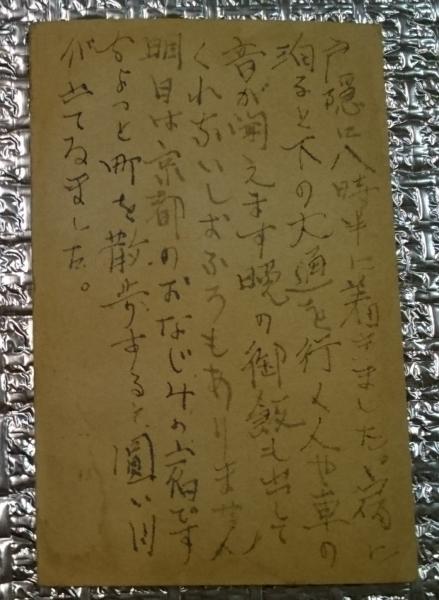 戸隠に八時半に着きました。宿に
泊ると下の大通を行く人や車の
音が聞えます晩の御飯も出して
くれないしおふろもありません
明日は京都のおなじみの宿です
ちょっと町を散歩すると圓い月
が出てゐました。